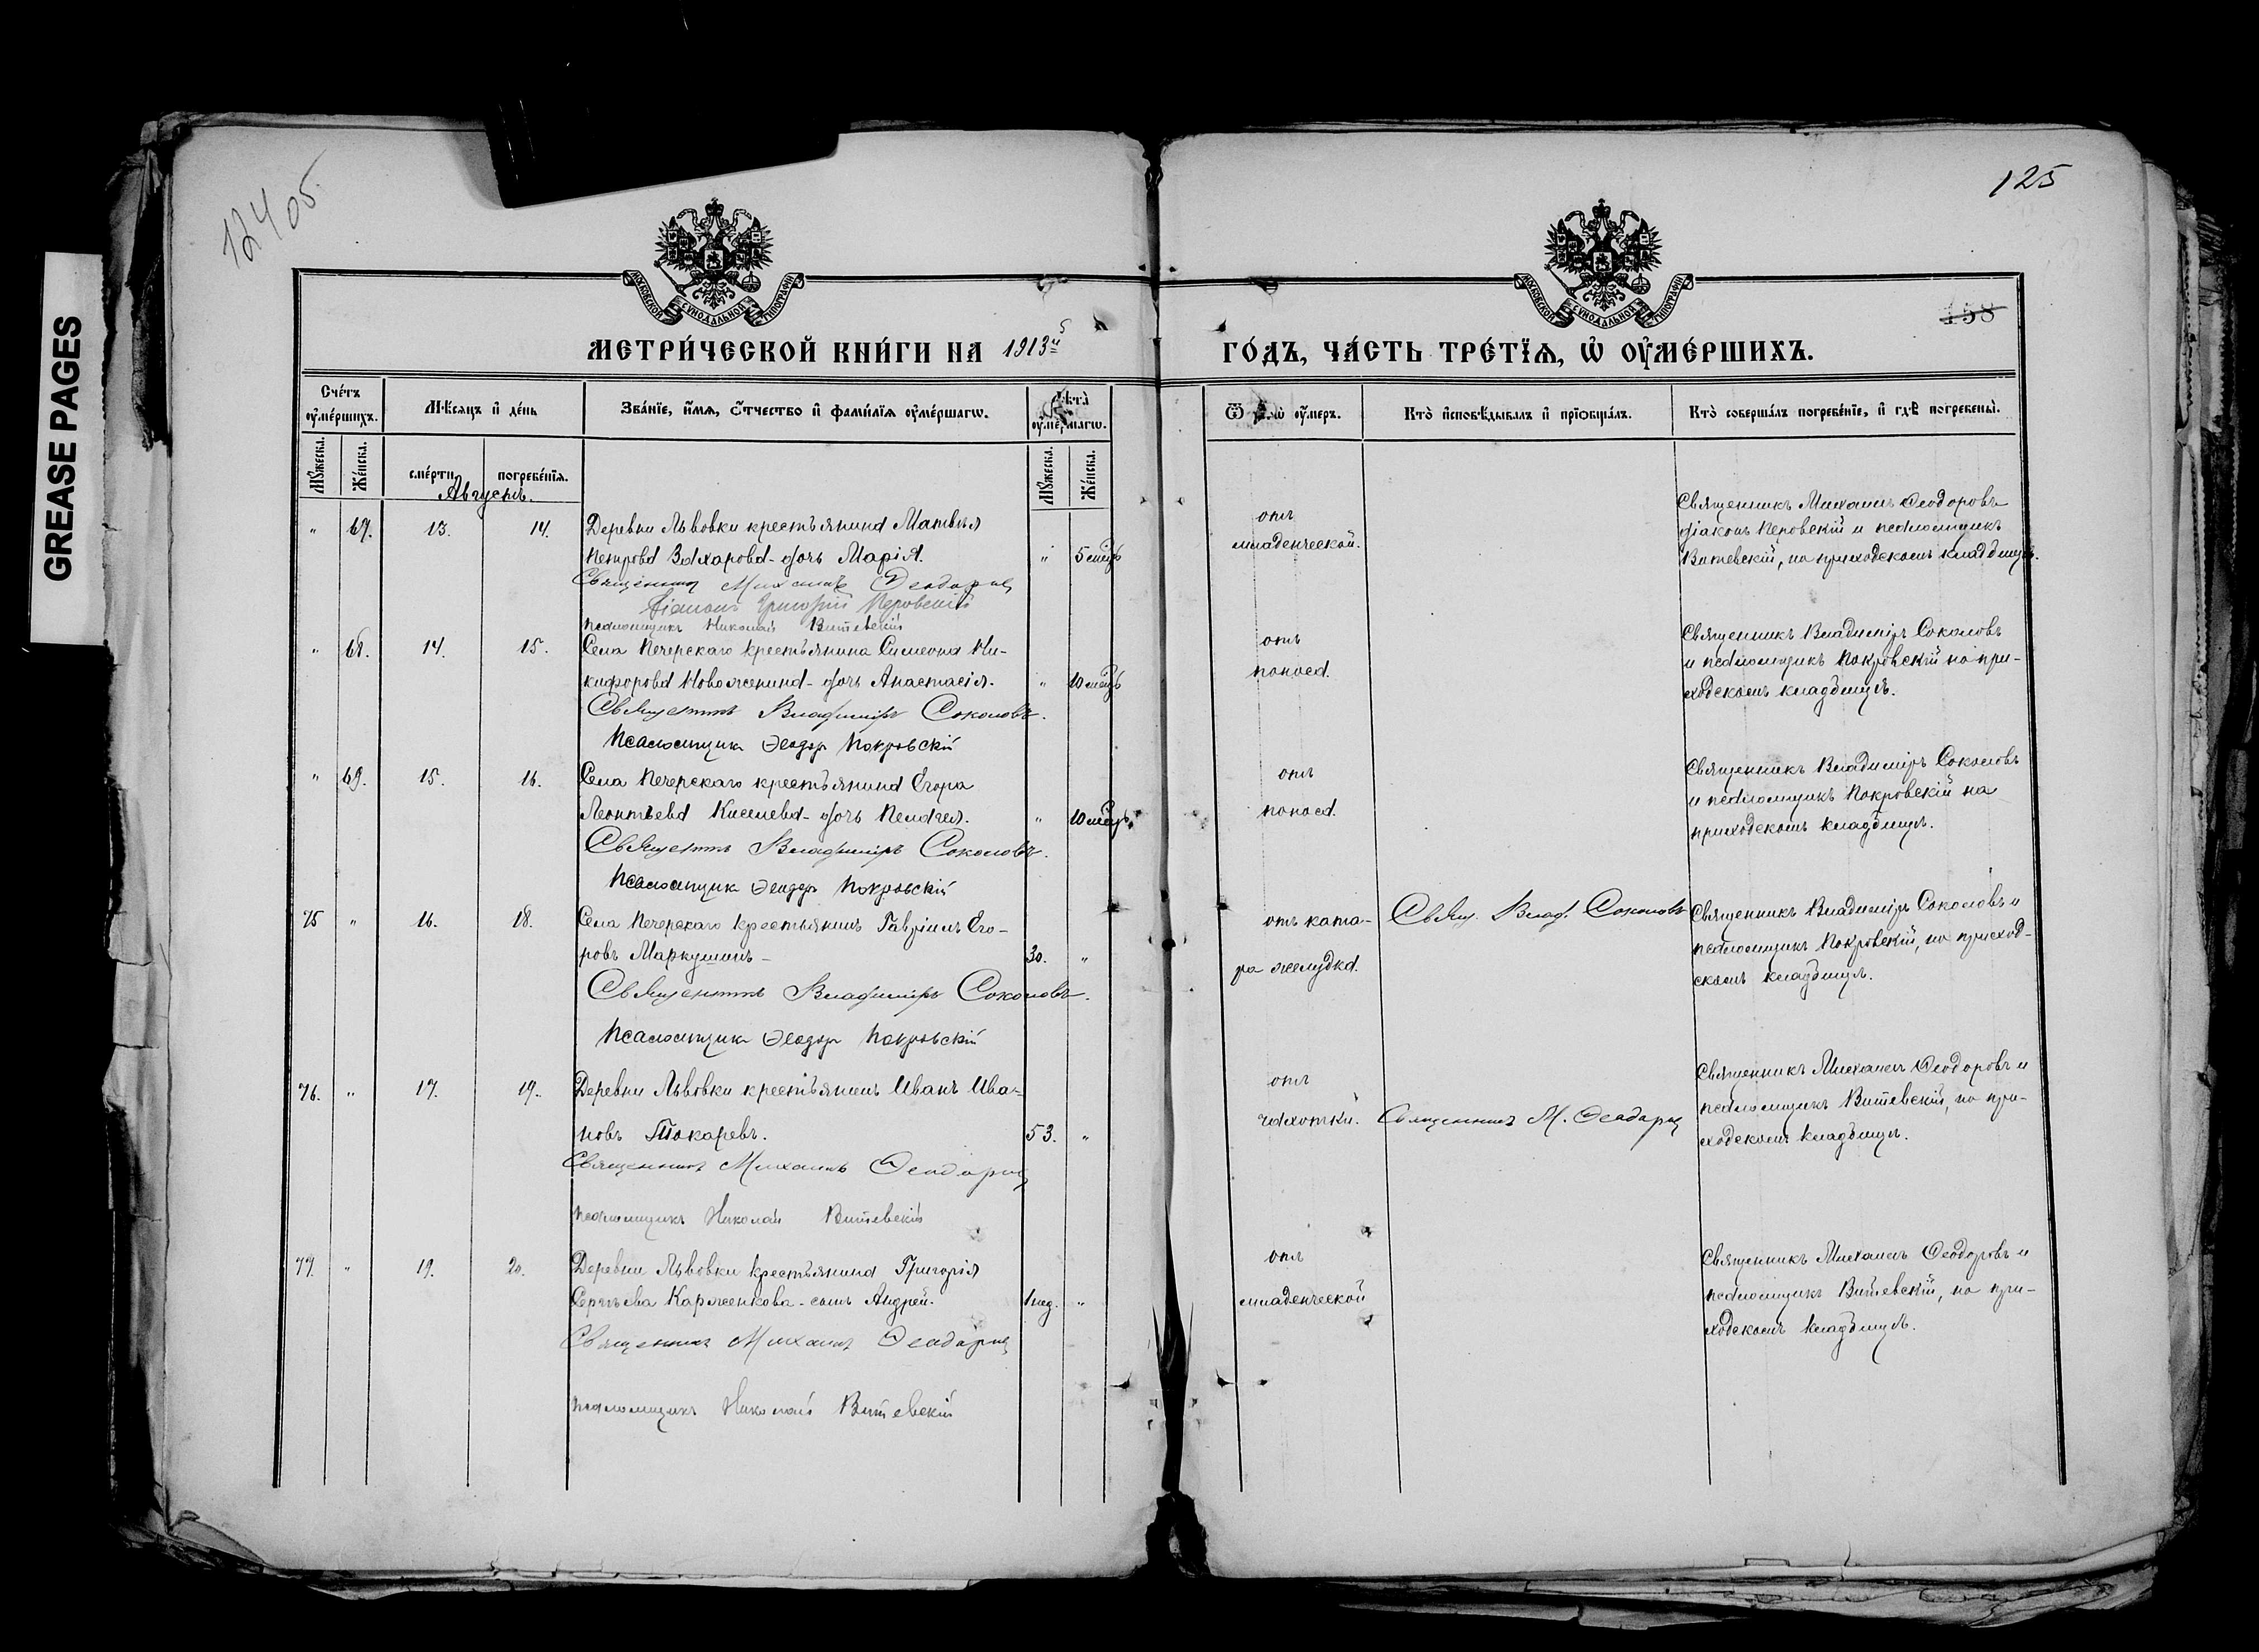 GREASE PAGES
12405
125
158
МОСКОВСКОЙ СѴНОДАЛЬНОЙ ТИПОГРАФІИ
МОСКОВСКОЙ СѴНОДАЛЬНОЙ ТИПОГРАФІИ
МЕТРИ́ЧЕСКОЙ КНИ́ГИ НА 1913й
ГО́ДЪ, ЧА́СТЬ ТРЕ́ТЇѦ, Ѡ҆ ОУ҆МЕ́РШИХЪ.
Сче́тъ оу҆ме́ршихъ.
Мѣсѧцъ и҆ де́нь
Зва́нїе, и҆́мѧ, ѻ҆́тчество и҆ фами́лїѧ оу҆ме́ршагѡ.
Лѣта̀ оу҆ме́ршагѡ.
Ѿ оу҆́меръ.
Кто̀ и҆сповѣ́дывалъ и҆ прїѡбща́лъ.
Кто̀ соверша́лъ погребе́нїе, и҆ гдѣ̀ погребены̀.
Мꙋ́жеска.
Же́нска.
сме́рти
погребе́нїѧ.
Мꙋ́жеска.
Же́нска.
Августъ.
" 67. 13. 14. Деревни Львовки крестьянина Матвѣя
Петрова Захарова - дочь Марія. " 5 мѣсъ
Священникъ Михаилъ Феодоровъ
Діаконъ Григорій Перовскій
Псаломщикъ Николай Витевскій
отъ
младенческой.
Священникъ Михаилъ Феодоровъ
діаконъ Перовскій и псаломщикъ
Витевскій, на приходскомъ кладбищѣ.
" 68. 14. 15. Села Печерскаго крестьянина Симеона Ни-
кифорова Новоженина - дочь Анастасія. " 10 мѣсъ
Священникъ Владиміръ Соколовъ.
Псаломщикъ Феодоръ Покровскій
отъ
поноса.
Священникъ Владиміръ Соколовъ
и псаломщикъ Покровскій на при-
ходскомъ кладбищѣ.
" 69. 15. 16. Села Печерскаго крестьянина Егора
Леонтьева Киселева - дочь Пелагея. " 10 мѣсъ.
Священникъ Владиміръ Соколовъ.
Псаломщикъ Феодоръ Покровскій
отъ
поноса.
Священникъ Владиміръ Соколовъ
и псаломщикъ Покровскій на
приходскомъ кладбищѣ.
75 " 16. 18. Села Печерскаго крестьянинъ Гавріилъ Его-
ровъ Маркушинъ - 30. "
Священникъ Владиміръ Соколовъ.
Псаломщикъ Феодоръ Покровскій
отъ ката-
ра желудка.
Свящ. Влад. Соколовъ
Священникъ Владиміръ Соколовъ и
псаломщикъ Покровскій, на приход-
скомъ кладбищѣ.
76. " 17. 19. Деревни Львовки крестьянинъ Иванъ Ива-
новъ Токаревъ. 53. "
Священникъ Михаилъ Феодоровъ
Псаломщикъ Николай Витевскій
отъ
чахотки.
Священникъ М. Феодоровъ
Священникъ Михаилъ Феодоровъ и
псаломщикъ Витевскій, на при-
ходскомъ кладбищѣ.
77. " 19. 20. Деревни Львовки крестьянина Григорія
Сергѣева Карженкова - сынъ Андрей. 1 нед. "
Священникъ Михаилъ Феодоровъ
Псаломщикъ Николай Витевскій
отъ
младенческой
Священникъ Михаилъ Феодоровъ и
псаломщикъ Витевскій, на при-
ходскомъ кладбищѣ.